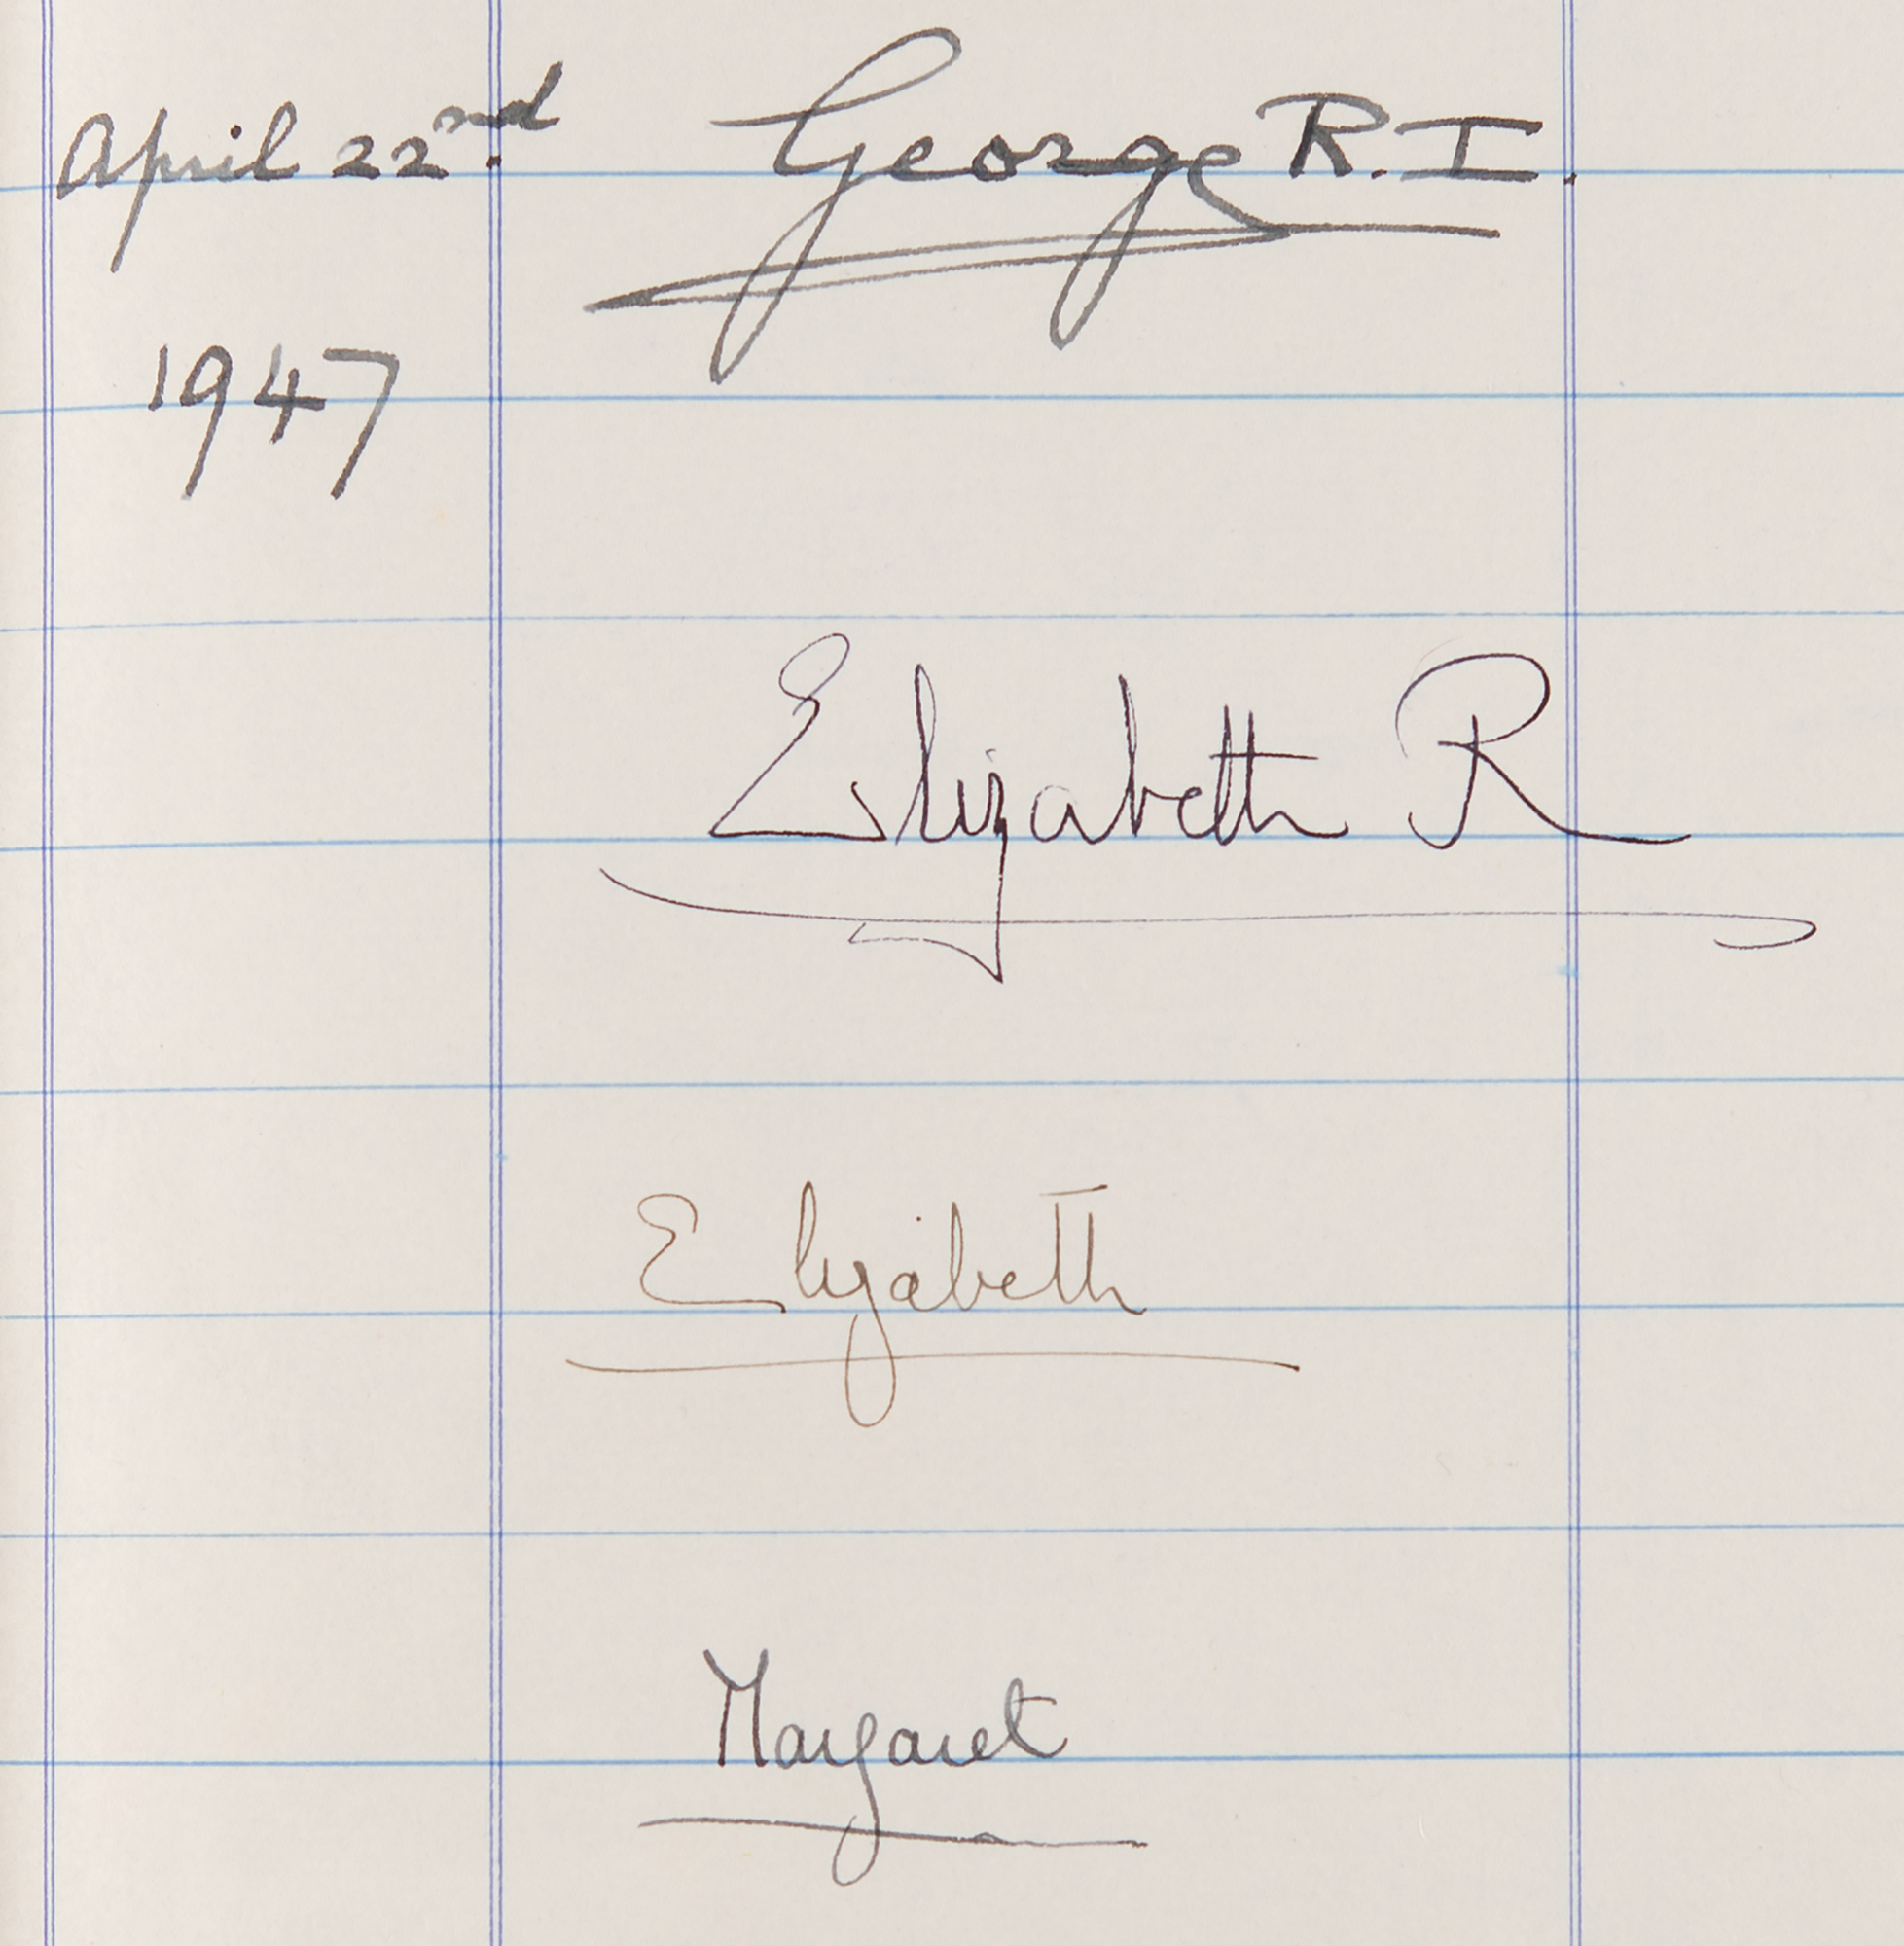 April 22nd. George R.I.
1947
Elizabeth R
Elizabeth
Margaret